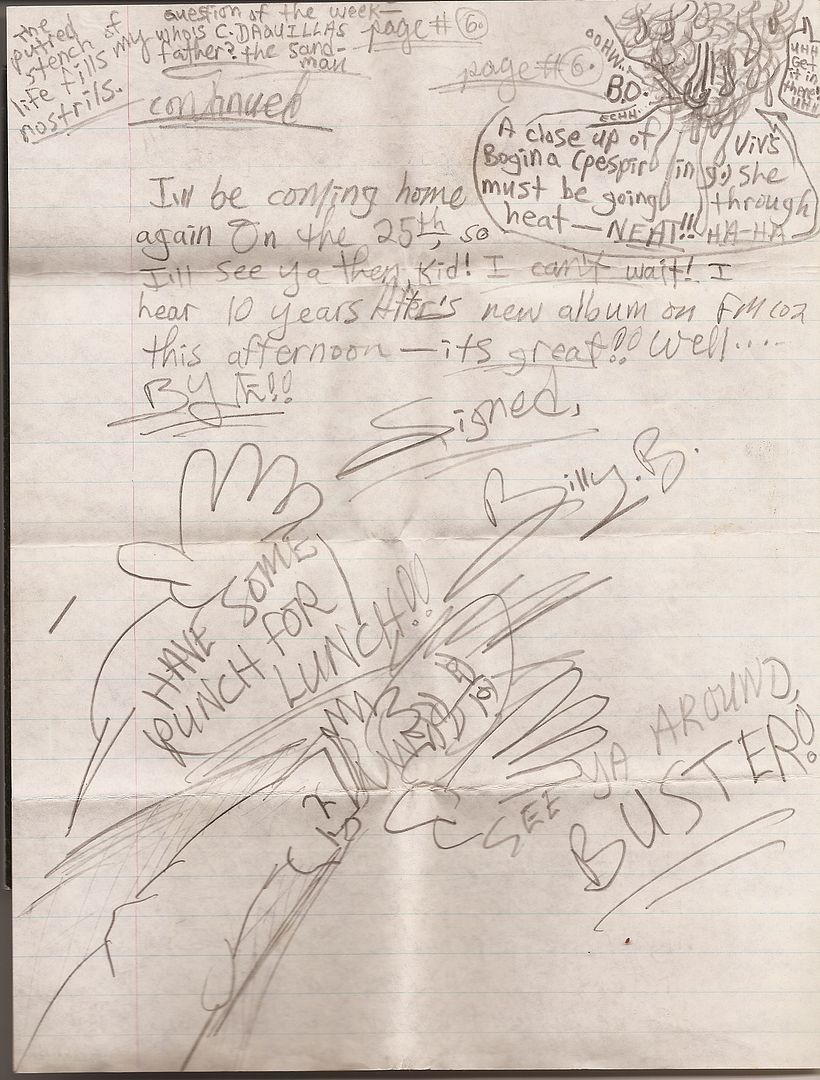 the
putrid
stench of
life fills my
nostrils.
question of the week—
who is C. DAQUILLAS
father? the Sand-
man
page # 6.
page # 6.
continued
OOHW...
B.O.
ECHH.
UHH
Get
it in
there!
UHH
A close up of Viv's
Bogina (pespiring.) She
must be going through
heat — NEAT!! HA-HA
I'll be coming home
again On the 25th, so
I'll see ya then, Kid! I can't wait! I
hear 10 years After's new album on FM 102
this afternoon — its great!! Well....
BYE!!
Signed,
Billy. B.
HAVE SOME
PUNCH FOR
LUNCH!!
SEE YA AROUND,
BUSTER!